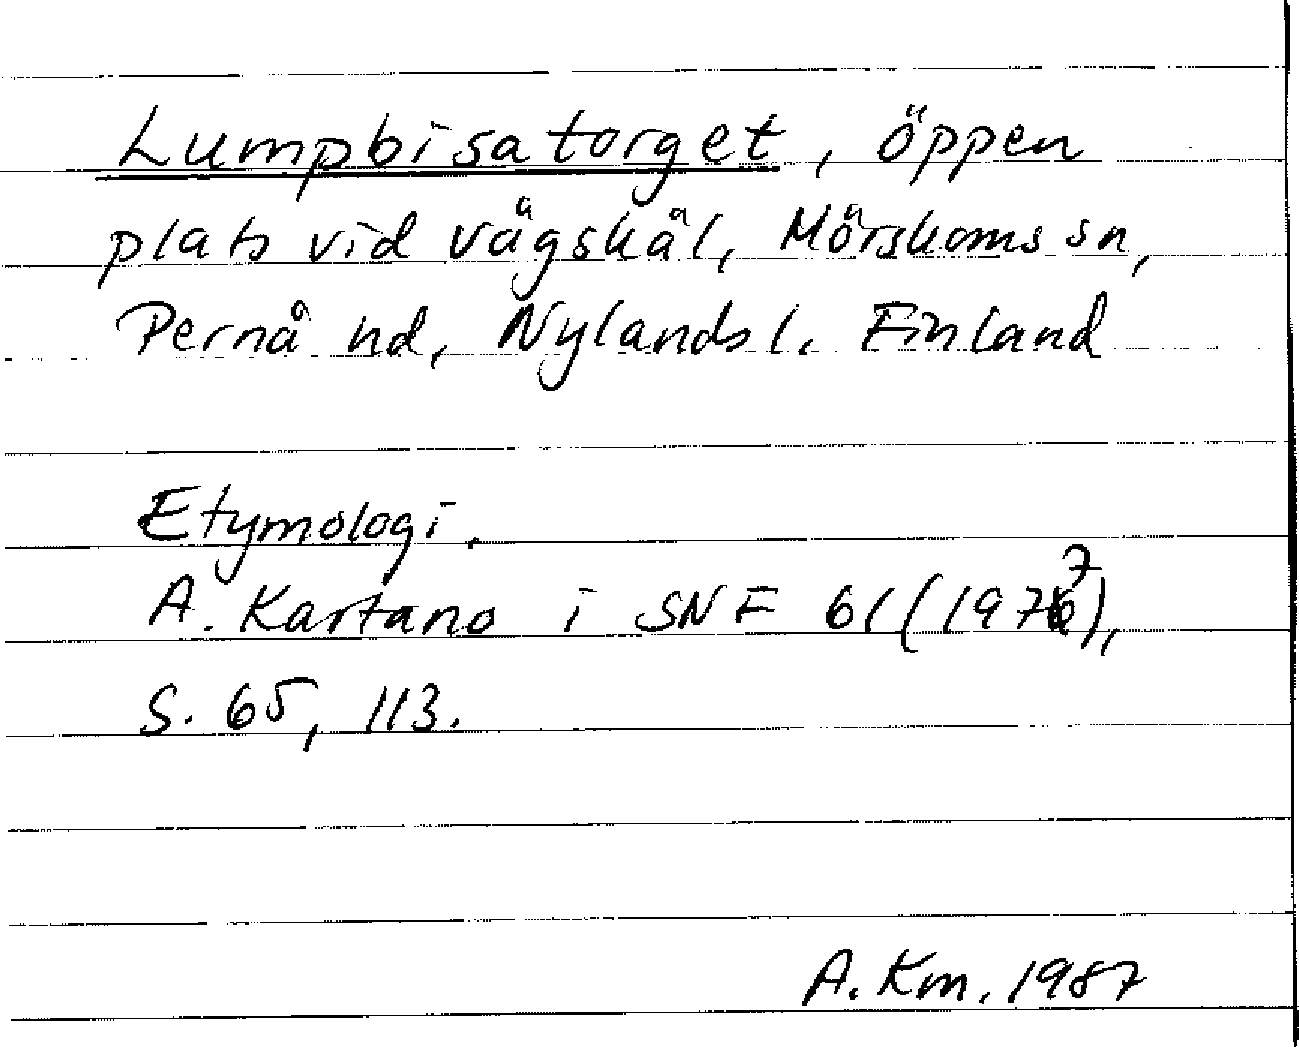 Lumpbisatorget, öppen
plats vid vägskäl, Mörskoms sn,
Pernå hd, Nylands l. Finland
Etymologi.
A. Kartano i SNF 61 (1977),
S. 65, 113.
A. Km. 1987